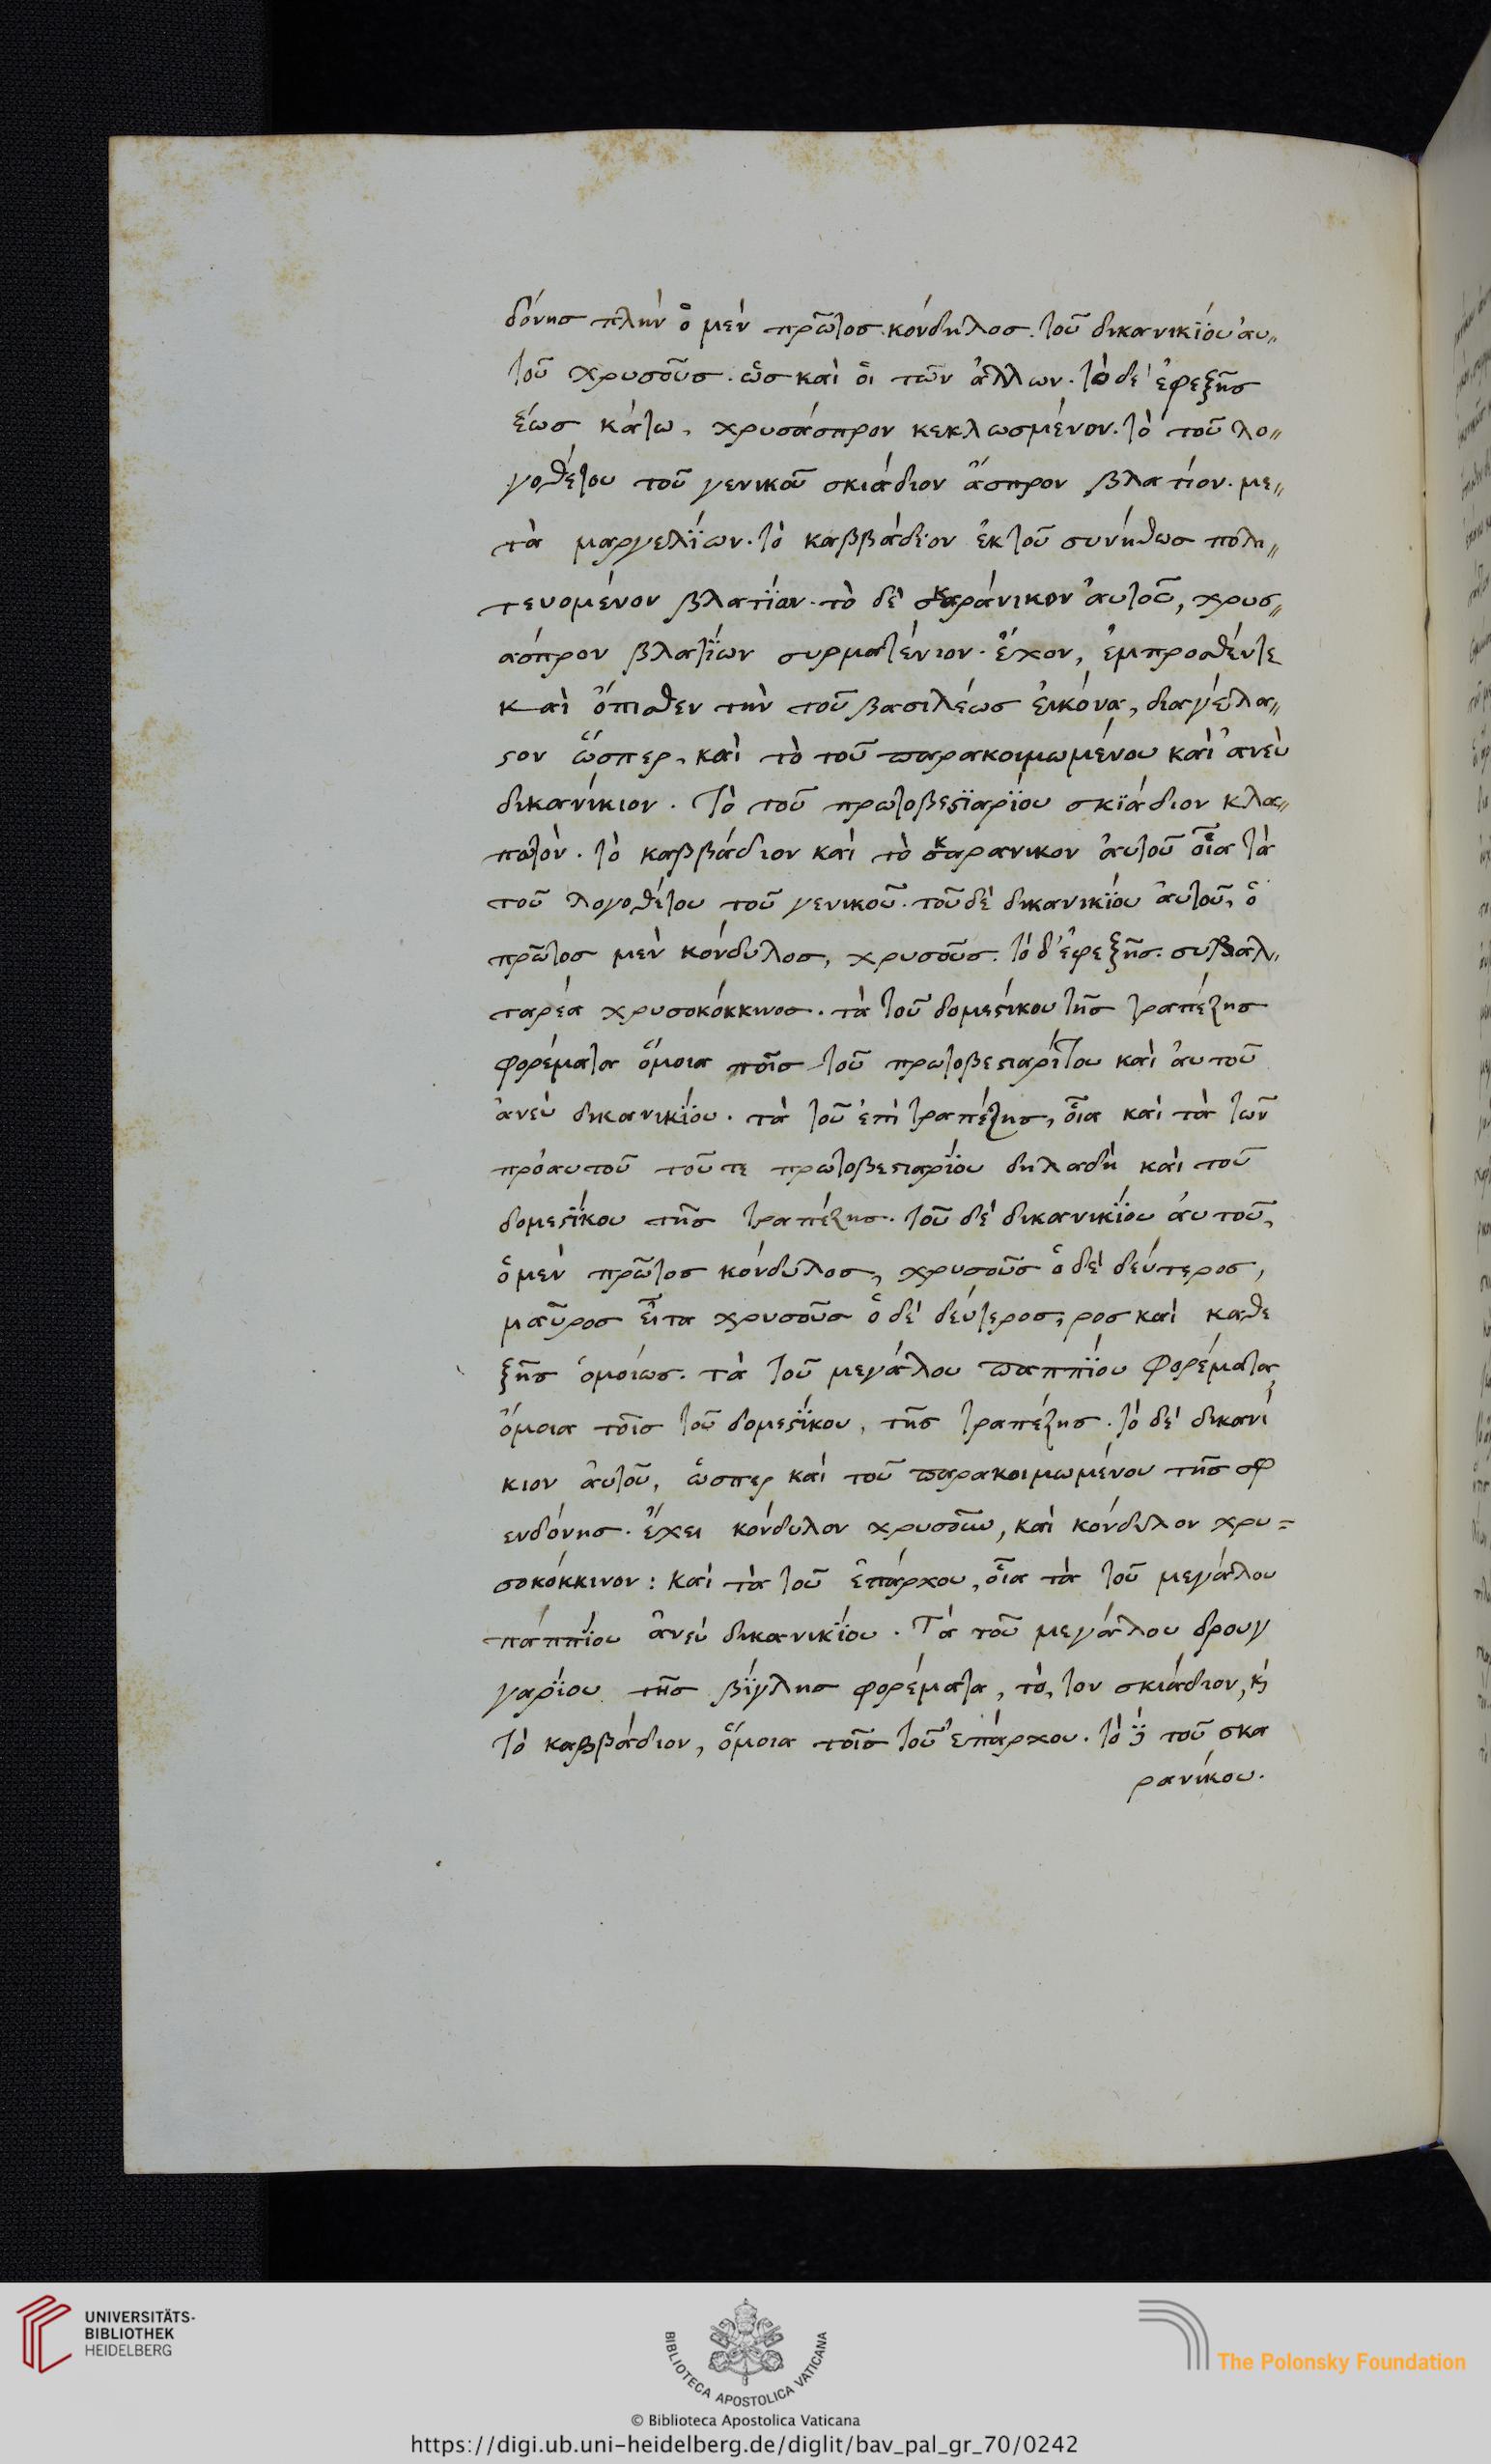 δόνησ πλὴν ὁ μὲν πρῶτος κόνδηλοσ. τοῦ δικανικΐου ἀυ〃
τοῦ χρυσοῦσ. ὧσ καὶ ὁι τῶν ἄλλων. τὸ δὲ ἐφεξῆσ
ἕωσ κάτω, χρυσάσπρον κεκλωσμένον. τὸ τοῦ λο〃
γοθέτου τοῦ γενικοῦ σκιάδιον ἄσπρον βλατιον. με〃
τὰ μαργελΐων. τὸ καββάδϊον ἐκ τοῦ συνήθωσ πολη〃
τευομένον βλατΐων. τὸ δὲ σκαράνικον ἀυτοῦ, χρυσ〃
ασπρον βλατΐων συρματένιον. ἔχον, ἐμπροσθέντε
καὶ ὄπισθεν τὴν τοῦ βασιλέωσ ἐικόνα, διαγέλα〃
ϛον ὥσπερ, καὶ τὸ τοῦ παρακοιμωμένου καὶ ἀνεὺ
δικανίκιον. Τὸ τοῦ πρωτοβεϛϊαρΐου σκϊάδιον κλα〃
πωτὸν. τὸ καββάδιον καὶ τὸ σκαρανικον ἀυτοῦ οἷα τὰ
τοῦ λογοθέτου τοῦ γενικοῦ. τοῦ δὲ δικανικΐου ἀυτοῦ, ὁ
πρῶτοσ μὲν κόνδυλοσ, χρυσοῦσ. τὸ δ' ἐφεξῆσ. συρβαλ〃
ταρέα χρυσοκόκκινοσ. τὰ τοῦ δομεϛίκου τῆσ τραπέζησ
φορέματα ὅμοια τοῖσ τοῦ πρωτοβεϛιαρίτου καὶ ἀυτοῦ
ἀνεὺ δικανικΐου. τὰ τοῦ ἐπὶ τραπέζησ, οἷα καὶ τὰ τῶν
πρὸ αυτοῦ τοῦ τε πρωτοβεϛιαρΐου δηλαδὴ καὶ τοῦ
δομεϛΐκου τῆσ τραπέζησ. τοῦ δὲ δικανικΐου ἀυτοῦ,
ὁ μὲν πρῶτοσ κόνδυλοσ, χρυσοῦσ ὁ δὲ δεύτεροσ,
μαῦροσ εἶτα χρυσοῦσ ὁ δὲ δεύτεροσ, ροσ καὶ καθε
ξῆσ ὁμοίωσ. τὰ τοῦ μεγάλου παππΐου φορέματα
ὅμοια τοῖσ τοῦ δομεϛΐκου, τῆσ τραπέζησ. τὸ δὲ δικανί
κιον ἀυτοῦ, ὥσπερ καὶ τοῦ παρακοιμωμένου τῆσ σφ
ενδόνησ. ἔχει κόνδυλον χρυσοῦν, καὶ κόνδυλον χρυ=
σοκόκκινον: καὶ τὰ τοῦ ἐπάρχου, οἷα τὰ τοῦ μεγάλου
πάππΐου ἀνεὺ δικανικΐου. Τὰ τοῦ μεγάλου δρουγ
γαρΐου τῆσ βΐγλησ φορέματα, τὸ, τον σκιάδιον, κὶ
τὸ καββάδιον, ὅμοια τοῖσ τοῦ ἐπάρχου. τὸ τοῦ σκα
ρανίκου.
UNIVERSITÄTS-
BIBLIOTHEK
HEIDELBERG
BIBLIOTECA APOSTOLICA VATICANA
The Polonsky Foundation
© Biblioteca Apostolica Vaticana
https://digi.ub.uni-heidelberg.de/diglit/bav_pal_gr_70/0242